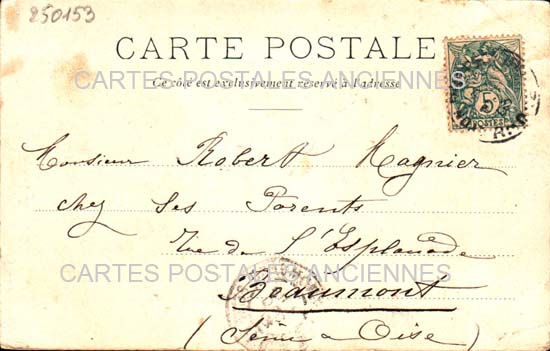 250153
CARTE POSTALE
CARTES POSTALES ANCIENNES
Ce côté est exclusivement réservé à l'adresse
5
POSTES
Monsieur Robert Magnier
chez Ses Parents
Rue de L'Esplanade
CARTES POSTALES ANCIENNES
Beaumont
(Seine & Oise)